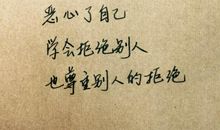 恶心了自己
学会拒绝别人
也尊重别人的拒绝